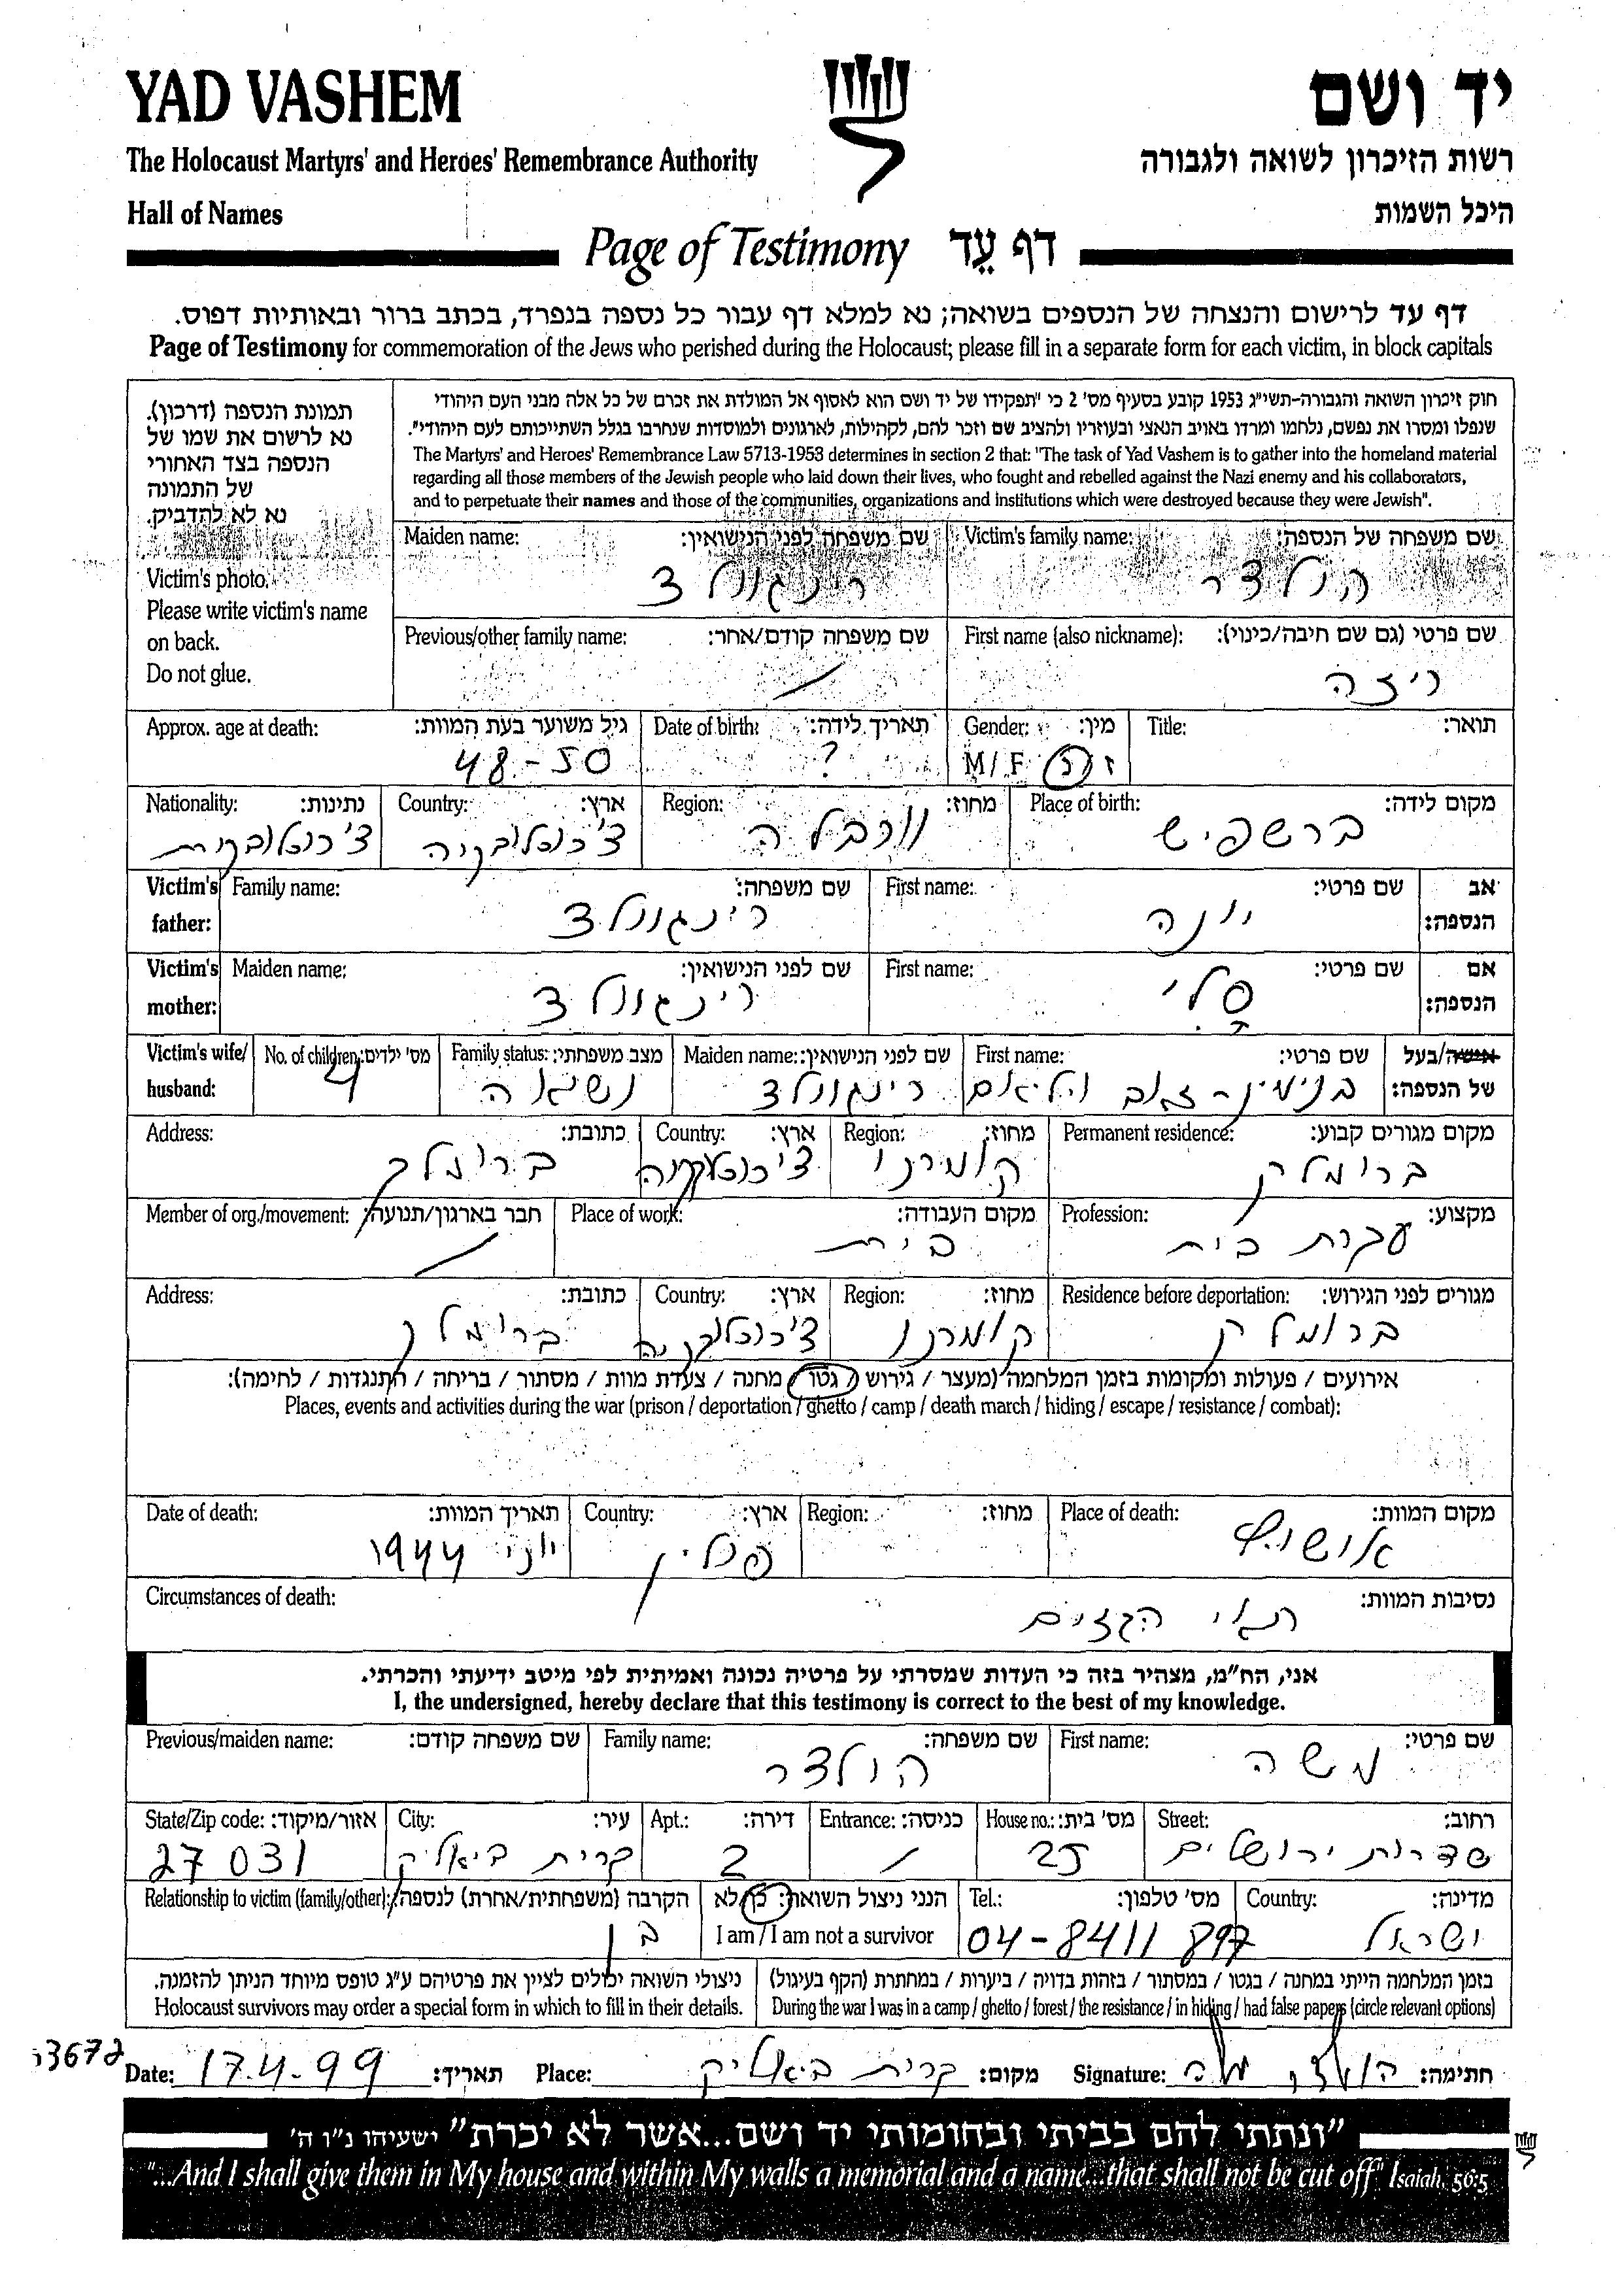 YAD VASHEM
יד ושם
The Holocaust Martyrs' and Heroes' Remembrance Authority
רשות הזיכרון לשואה ולגבורה
Hall of Names
היכל השמות
Page of Testimony דף עֵד
דף עד לרישום והנצחה של הנספים בשואה; נא למלא דף עבור כל נספה בנפרד, בכתב ברור ובאותיות דפוס.
Page of Testimony for commemoration of the Jews who perished during the Holocaust; please fill in a separate form for each victim, in block capitals
תמונת הנספה (דרכון).
נא לרשום את שמו של
הנספה בצד האחורי
של התמונה
נא לא להדביק.
Victim's photo.
Please write victim's name
on back.
Do not glue.
חוק זיכרון השואה והגבורה-תשי"ג 1953 קובע בסעיף מס' 2 כי "תפקידו של יד ושם הוא לאסוף אל המולדת את זכרם של כל אלה מבני העם היהודי
שנפלו ומסרו את נפשם, נלחמו ומרדו באויב הנאצי ובעוזריו ולהציב שם וזכר להם, לקהילות, לארגונים ולמוסדות שנחרבו בגלל השתייכותם לעם היהודי".
The Martyrs' and Heroes' Remembrance Law 5713-1953 determines in section 2 that: "The task of Yad Vashem is to gather into the homeland material
regarding all those members of the Jewish people who laid down their lives, who fought and rebelled against the Nazi enemy and his collaborators,
and to perpetuate their names and those of the communities, organizations and institutions which were destroyed because they were Jewish".
Victim's family name: שם משפחה של הנספה:
הולצר
Maiden name: שם משפחה לפני הנישואין:
רינגולד
First name (also nickname): שם פרטי (גם שם חיבה/כינוי):
ריזה
Previous/other family name: שם משפחה קודם/אחר:
/
Title: תואר:
Gender: מין:
M/F ז/נ
Date of birth: תאריך לידה:
?
Approx. age at death: גיל משוער בעת המוות:
48-50
Place of birth: מקום לידה:
ברשפיש
Region: מחוז:
וורבלה
Country: ארץ:
צ'כוסלובקיה
Nationality: נתינות:
צ'כוסלובקית
Victim's father: אב הנספה:
First name: שם פרטי:
יונה
Family name: שם משפחה:
רינגולד
Victim's mother: אם הנספה:
First name: שם פרטי:
פלי
Maiden name: שם לפני הנישואין:
רינגולד
Victim's wife/husband: אישה/בעל של הנספה:
First name: שם פרטי:
בנימין-זאב
Maiden name: שם לפני הנישואין:
רינגולד
Family status: מצב משפחתי:
נשואה
No. of children: מס' ילדים:
4
Permanent residence: מקום מגורים קבוע:
ברומלק
Region: מחוז:
קומרנו
Country: ארץ:
צ'כוסלובקיה
Address: כתובת:
ברומלק
Profession: מקצוע:
עקרת בית
Place of work: מקום העבודה:
בית
Member of org./movement: חבר בארגון/תנועה:
/
Residence before deportation: מגורים לפני הגירוש:
ברומלק
Region: מחוז:
קומרנו
Country: ארץ:
צ'כוסלובקיה
Address: כתובת:
ברומלק
אירועים / פעולות ומקומות בזמן המלחמה (מעצר / גירוש / גטו / מחנה / צעדת מוות / מסתור / בריחה / התנגדות / לחימה):
Places, events and activities during the war (prison / deportation / ghetto / camp / death march / hiding / escape / resistance / combat):
Place of death: מקום המוות:
אושויץ
Region: מחוז:
Country: ארץ:
פולין
Date of death: תאריך המוות:
יוני 1944
Circumstances of death: נסיבות המוות:
תאי הגזים
אני, הח"מ, מצהיר בזה כי העדות שמסרתי על פרטיה נכונה ואמיתית לפי מיטב ידיעתי והכרתי.
I, the undersigned, hereby declare that this testimony is correct to the best of my knowledge.
First name: שם פרטי:
משה
Family name: שם משפחה:
הולצר
Previous/maiden name: שם משפחה קודם:
Street: רחוב:
שדרות ירושלים
House no.: מס' בית:
25
Entrance: כניסה:
/
Apt.: דירה:
2
City: עיר:
קרית ביאליק
State/Zip code: אזור/מיקוד:
27031
Country: מדינה:
ישראל
Tel.: מס' טלפון:
04-8411 897
הנני ניצול השואה: כן/לא
I am / I am not a survivor
Relationship to victim (family/other): הקרבה (משפחתית/אחרת) לנספה:
בן
בזמן המלחמה הייתי במחנה / בגטו / במסתור / בזהות בדויה / ביערות / במחתרת (הקף בעיגול)
During the war I was in a camp / ghetto / forest / the resistance / in hiding / had false papers (circle relevant options)
ניצולי השואה יכולים לציין את פרטיהם ע"ג טופס מיוחד הניתן להזמנה.
Holocaust survivors may order a special form in which to fill in their details.
Date: 17.4.99 תאריך: Place: קרית ביאליק מקום: Signature: הולצר משה חתימה:
"ונתתי להם בביתי ובחומותי יד ושם...אשר לא יכרת" ישעיהו נ"ו ה'
"...And I shall give them in My house and within My walls a memorial and a name...that shall not be cut off" Isaiah, 56:5